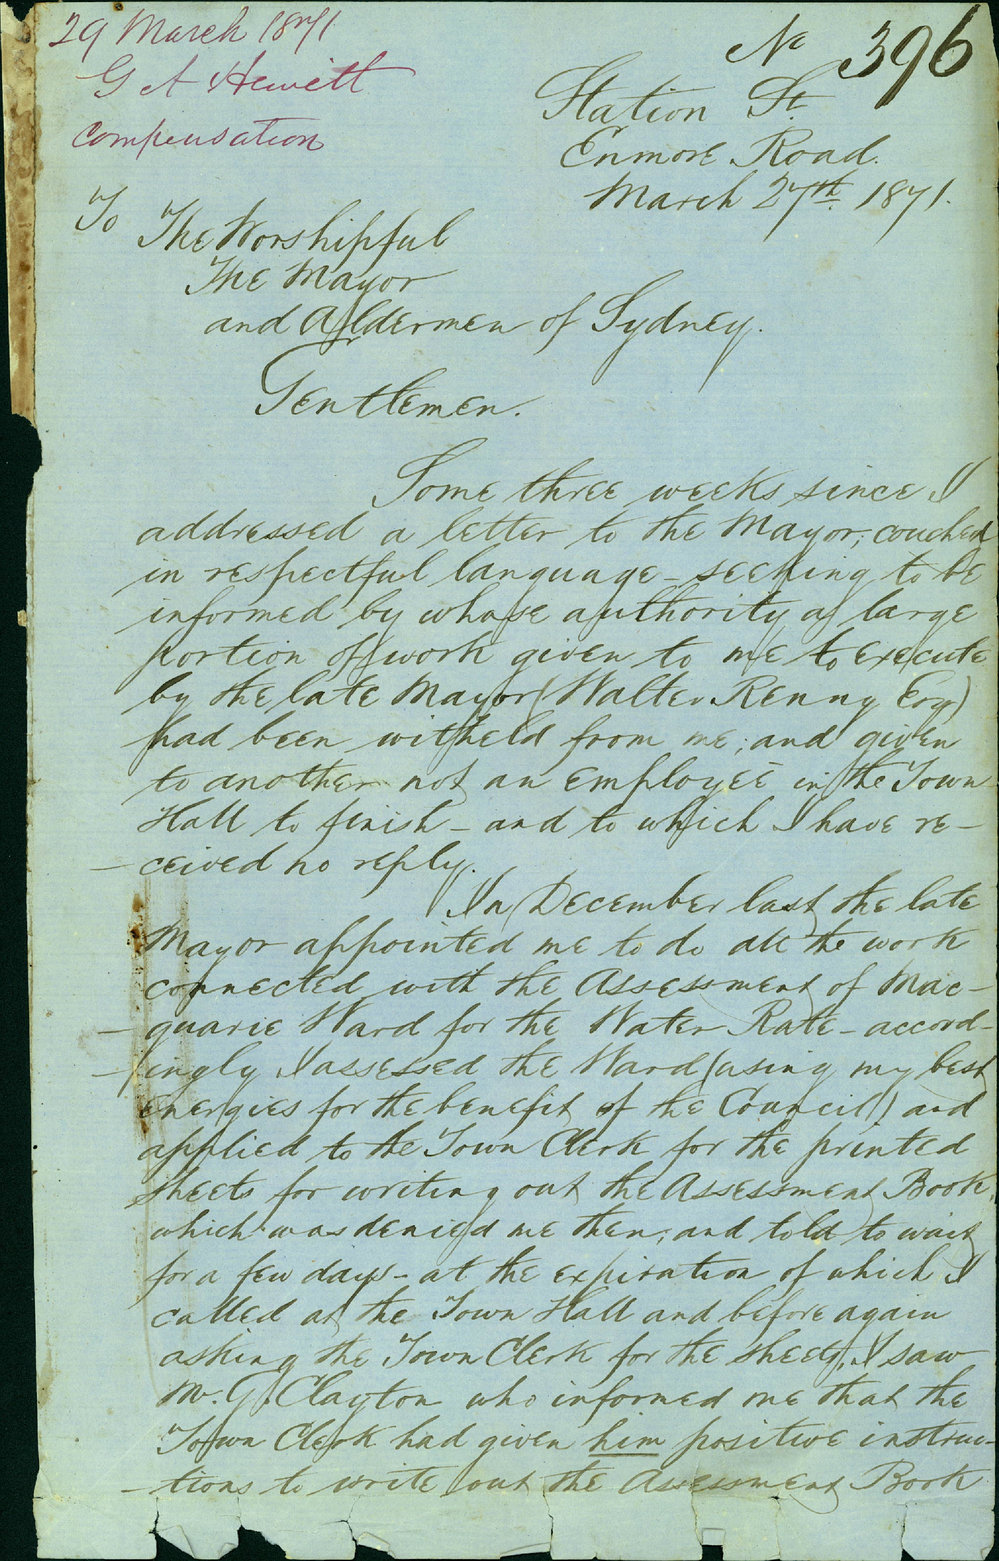 29 March 1871
G A Hewitt
compensation
No 396
Station St.
Enmore Road.
March 27th. 1871.
To
The Worshipful
The Mayor
and Aldermen of Sydney.
Gentlemen.
Some three weeks since I
addressed a letter to the Mayor, couched
in respectful language - seeking to be
informed by whose authority a large
portion of work given to me to execute
by the late Mayor (Walter Renny Esq)
had been witheld from me; and given
to another not an employeé in the Town
Hall to finish - and to which I have re-
-ceived no reply.
In December last the late
Mayor appointed me to do all the work
connected with the Assessment of Mac-
-quarie Ward for the Water Rate - accord-
-ingly I assessed the Ward (using my best
energies for the benefit of the Council) and
applied to the Town Clerk for the printed
sheets for writing out the Assessment Book,
which was denied me then; and told to wait
for a few days - at the expiration of which I
called at the Town Hall and before again
asking the Town Clerk for the sheets, I saw
Mr. G. Clayton who informed me that the
Town Clerk had given him positive instruc-
-tions to write out the Assessment Book